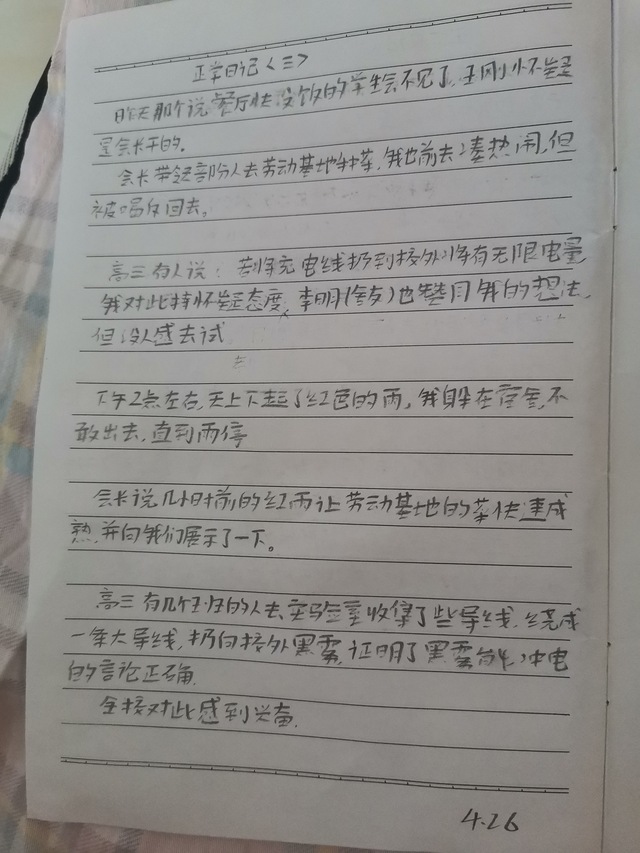 正常日记<三>
昨天那个说餐厅快没饭的学生会不见了,王刚怀疑
是会长干的。
会长带领部分人去劳动基地种菜,我也前去凑热闹,但
被喝反回去。
高三有人说:若将充电线扔到校外将有无限电量
我对此持怀疑态度,李明(舍友)也赞同我的想法,
但没人感去试
下午2点左右,天上下起了红色的雨,我躲在宿舍,不
敢出去,直到雨停
会长说几小时前的红雨让劳动基地的菜快速成
熟,并向我们展示了一下。
高三有几个的人去实验室收集了些导线,绕成
一条大导线,扔向校外黑雾,证明了黑雾能冲电
的言论正确.
全校对此感到兴奋.
4.26